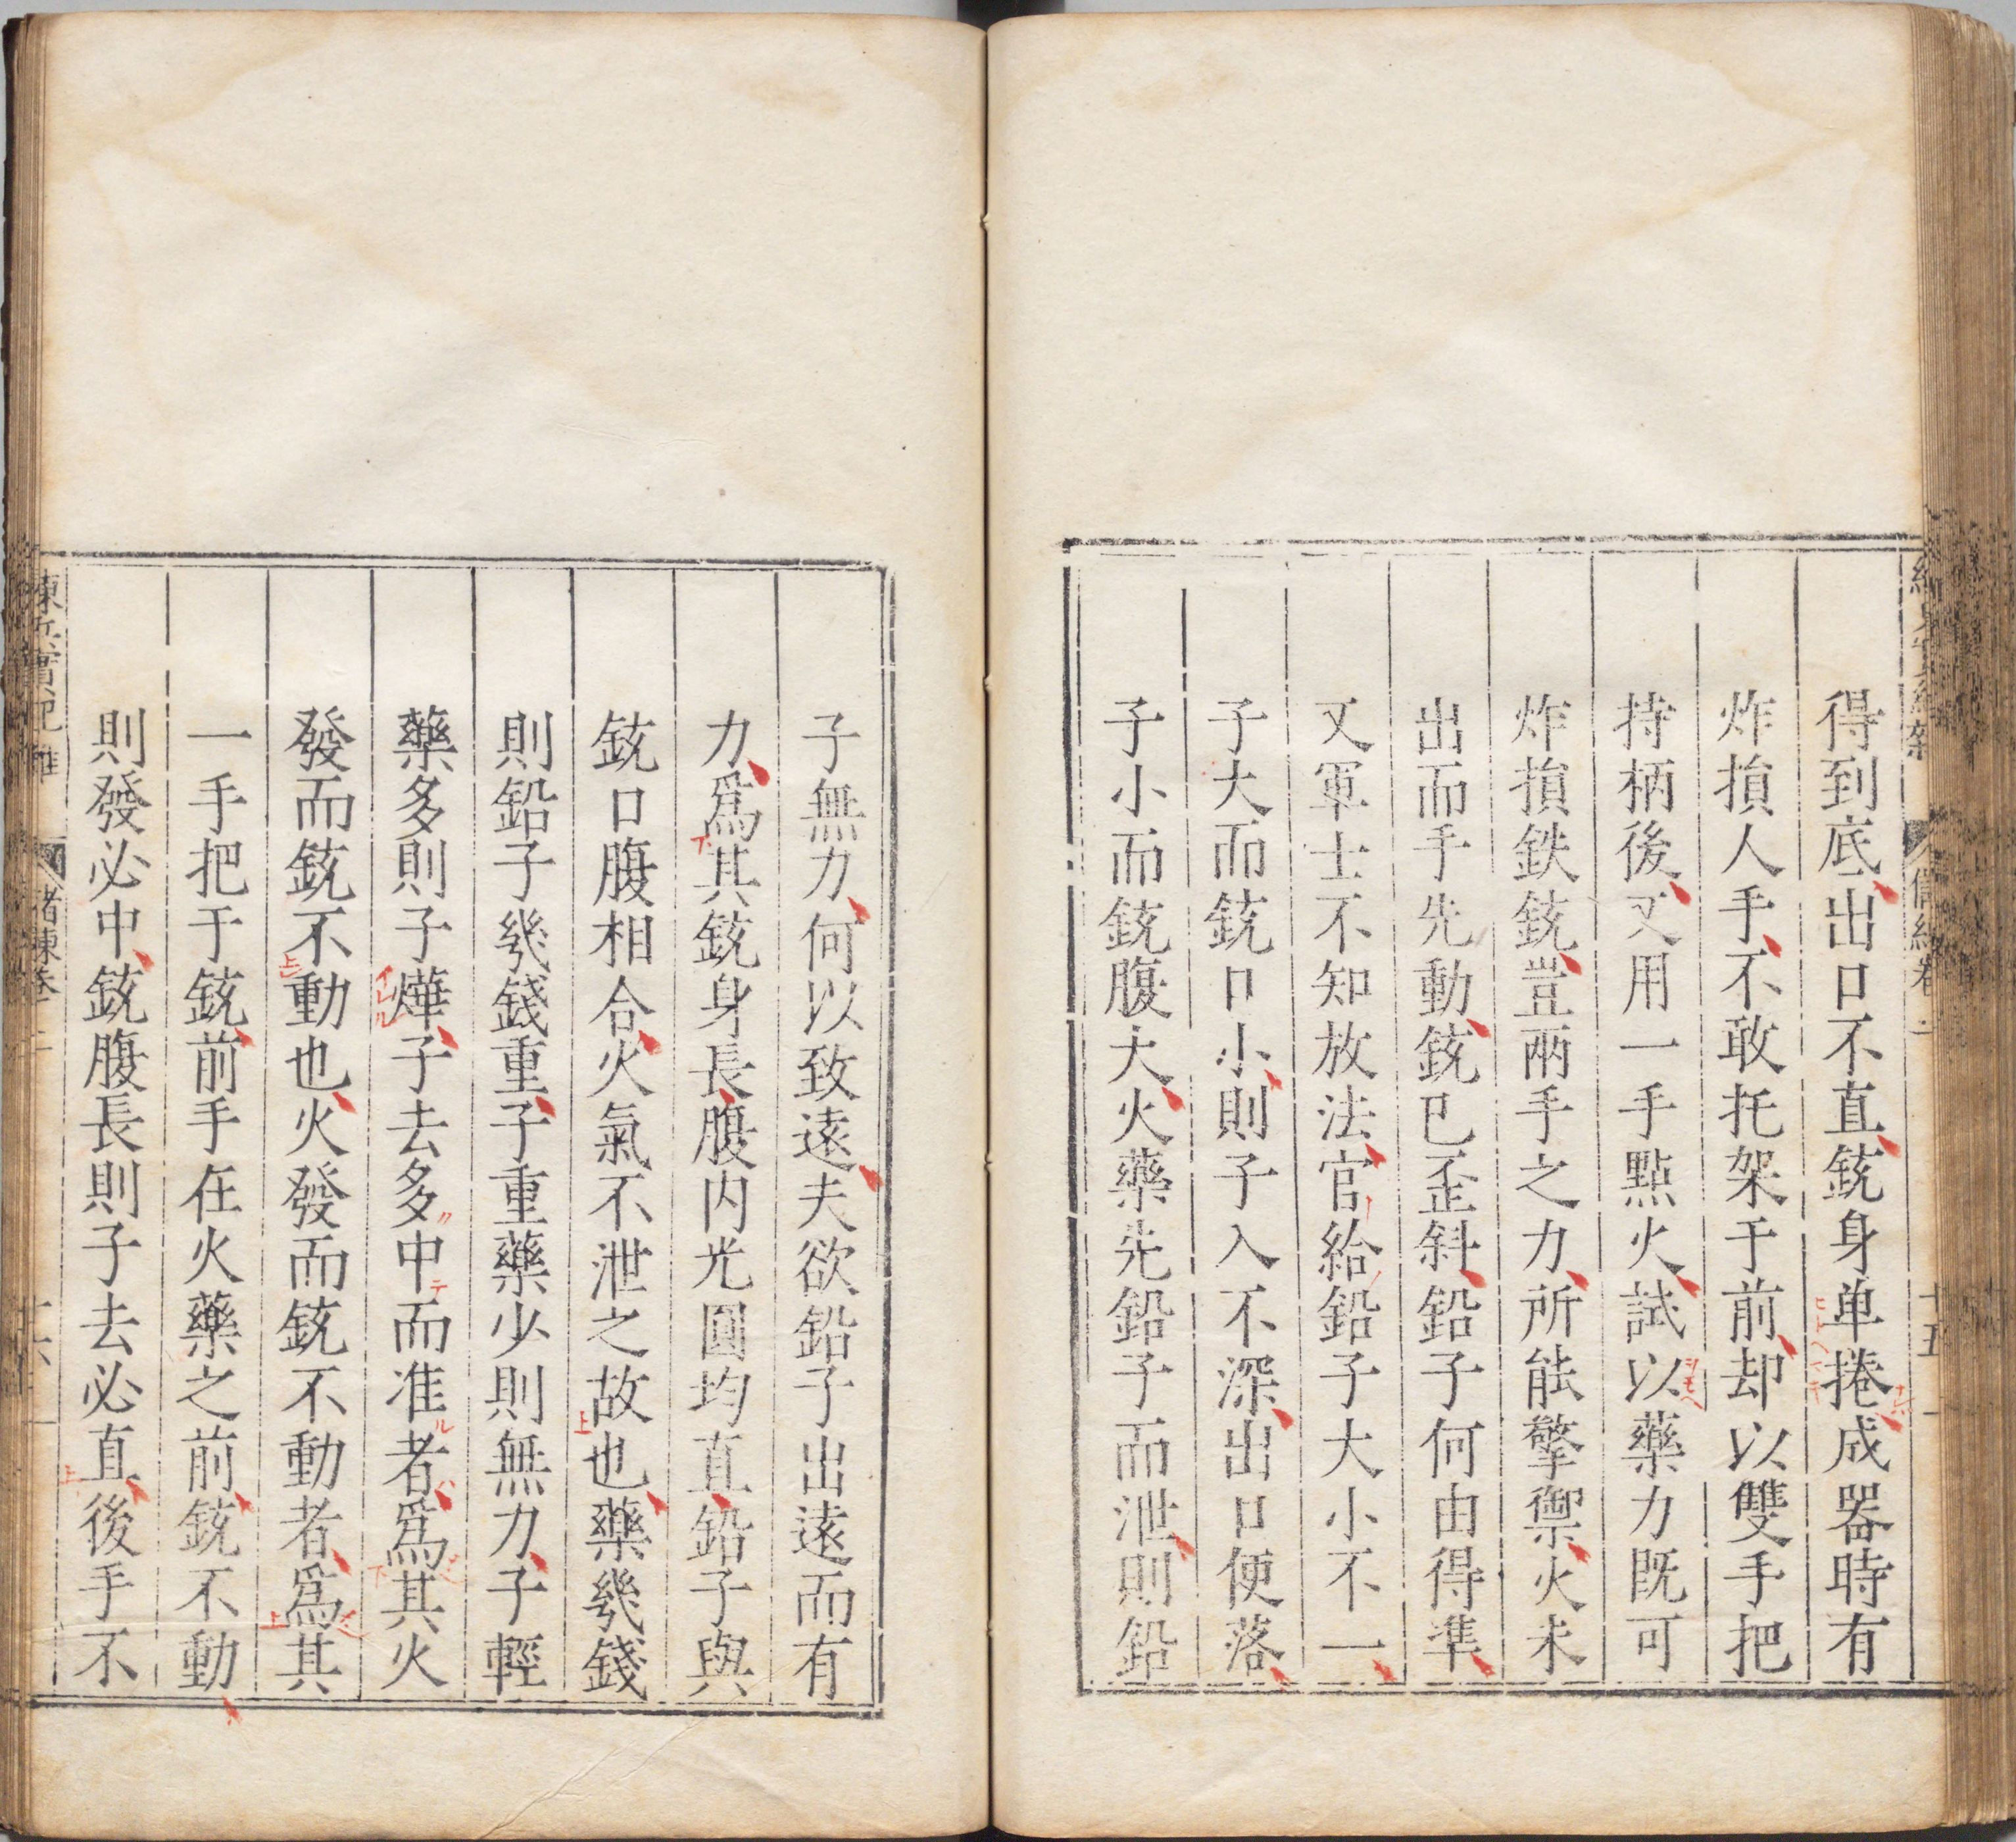 得到底出口不直銃身单捲成器時有
炸損人手不敢托架于前却以雙手把
持柄後又用一手點火試以藥力既可
炸損鉄銃豈兩手之力所能擎禦火未
出而手先動銃已歪斜鉛子何由得準
又軍士不知放法官給鉛子大小不一
子大而銃口小則子入不深出口便落
子小而銃腹大火藥先鉛子而泄則鉛
子無力何以致遠夫欲鉛子出遠而有
力爲其銃身長腹内光圓均直鉛子與
銃口腹相合火氣不泄之故也藥幾錢
則鉛子幾錢重子重藥少則無力子輕
藥多則子燁子去多中而准者爲其火
發而銃不動也火發而銃不動者爲其
一手把于銃前手在火藥之前銃不動
則發必中銃腹長則子去必直後手不
練兵實紀雜 儲練卷二 十六